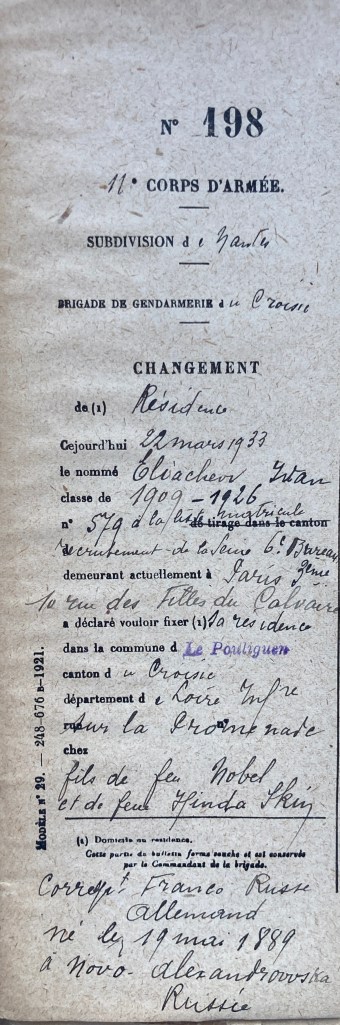 N° 198
11e CORPS D'ARMÉE.
SUBDIVISION de Nantes
BRIGADE DE GENDARMERIE du Croisic
CHANGEMENT
de (1) Résidence
Cejourd'hui 22 mars 1933
le nommé Eliacheur Ivan
classe de 1909 - 1926
n° 579 à la liste matricule
de tirage dans le canton
recrutement de la Seine 6e Bureau
demeurant actuellement à Paris 3ème
10 rue des Filles du Calvaire
a déclaré vouloir fixer (1) sa résidence
dans la commune d Le Pouliguen
canton du Croisic
département de Loire Infre
rue sur la Promenade n°
chez
fils de feu Nobel
et de feue Hinda Skin
(1) Domicile ou résidence.
Cette partie du bulletin forme souche et est conservée
par le Commandant de la brigade.
Corrept Franco Russe
Allemand
né le 19 mai 1889
à Novo-Alexandrovska
Russie
MODÈLE N° 29. — 248-676 B-1921.